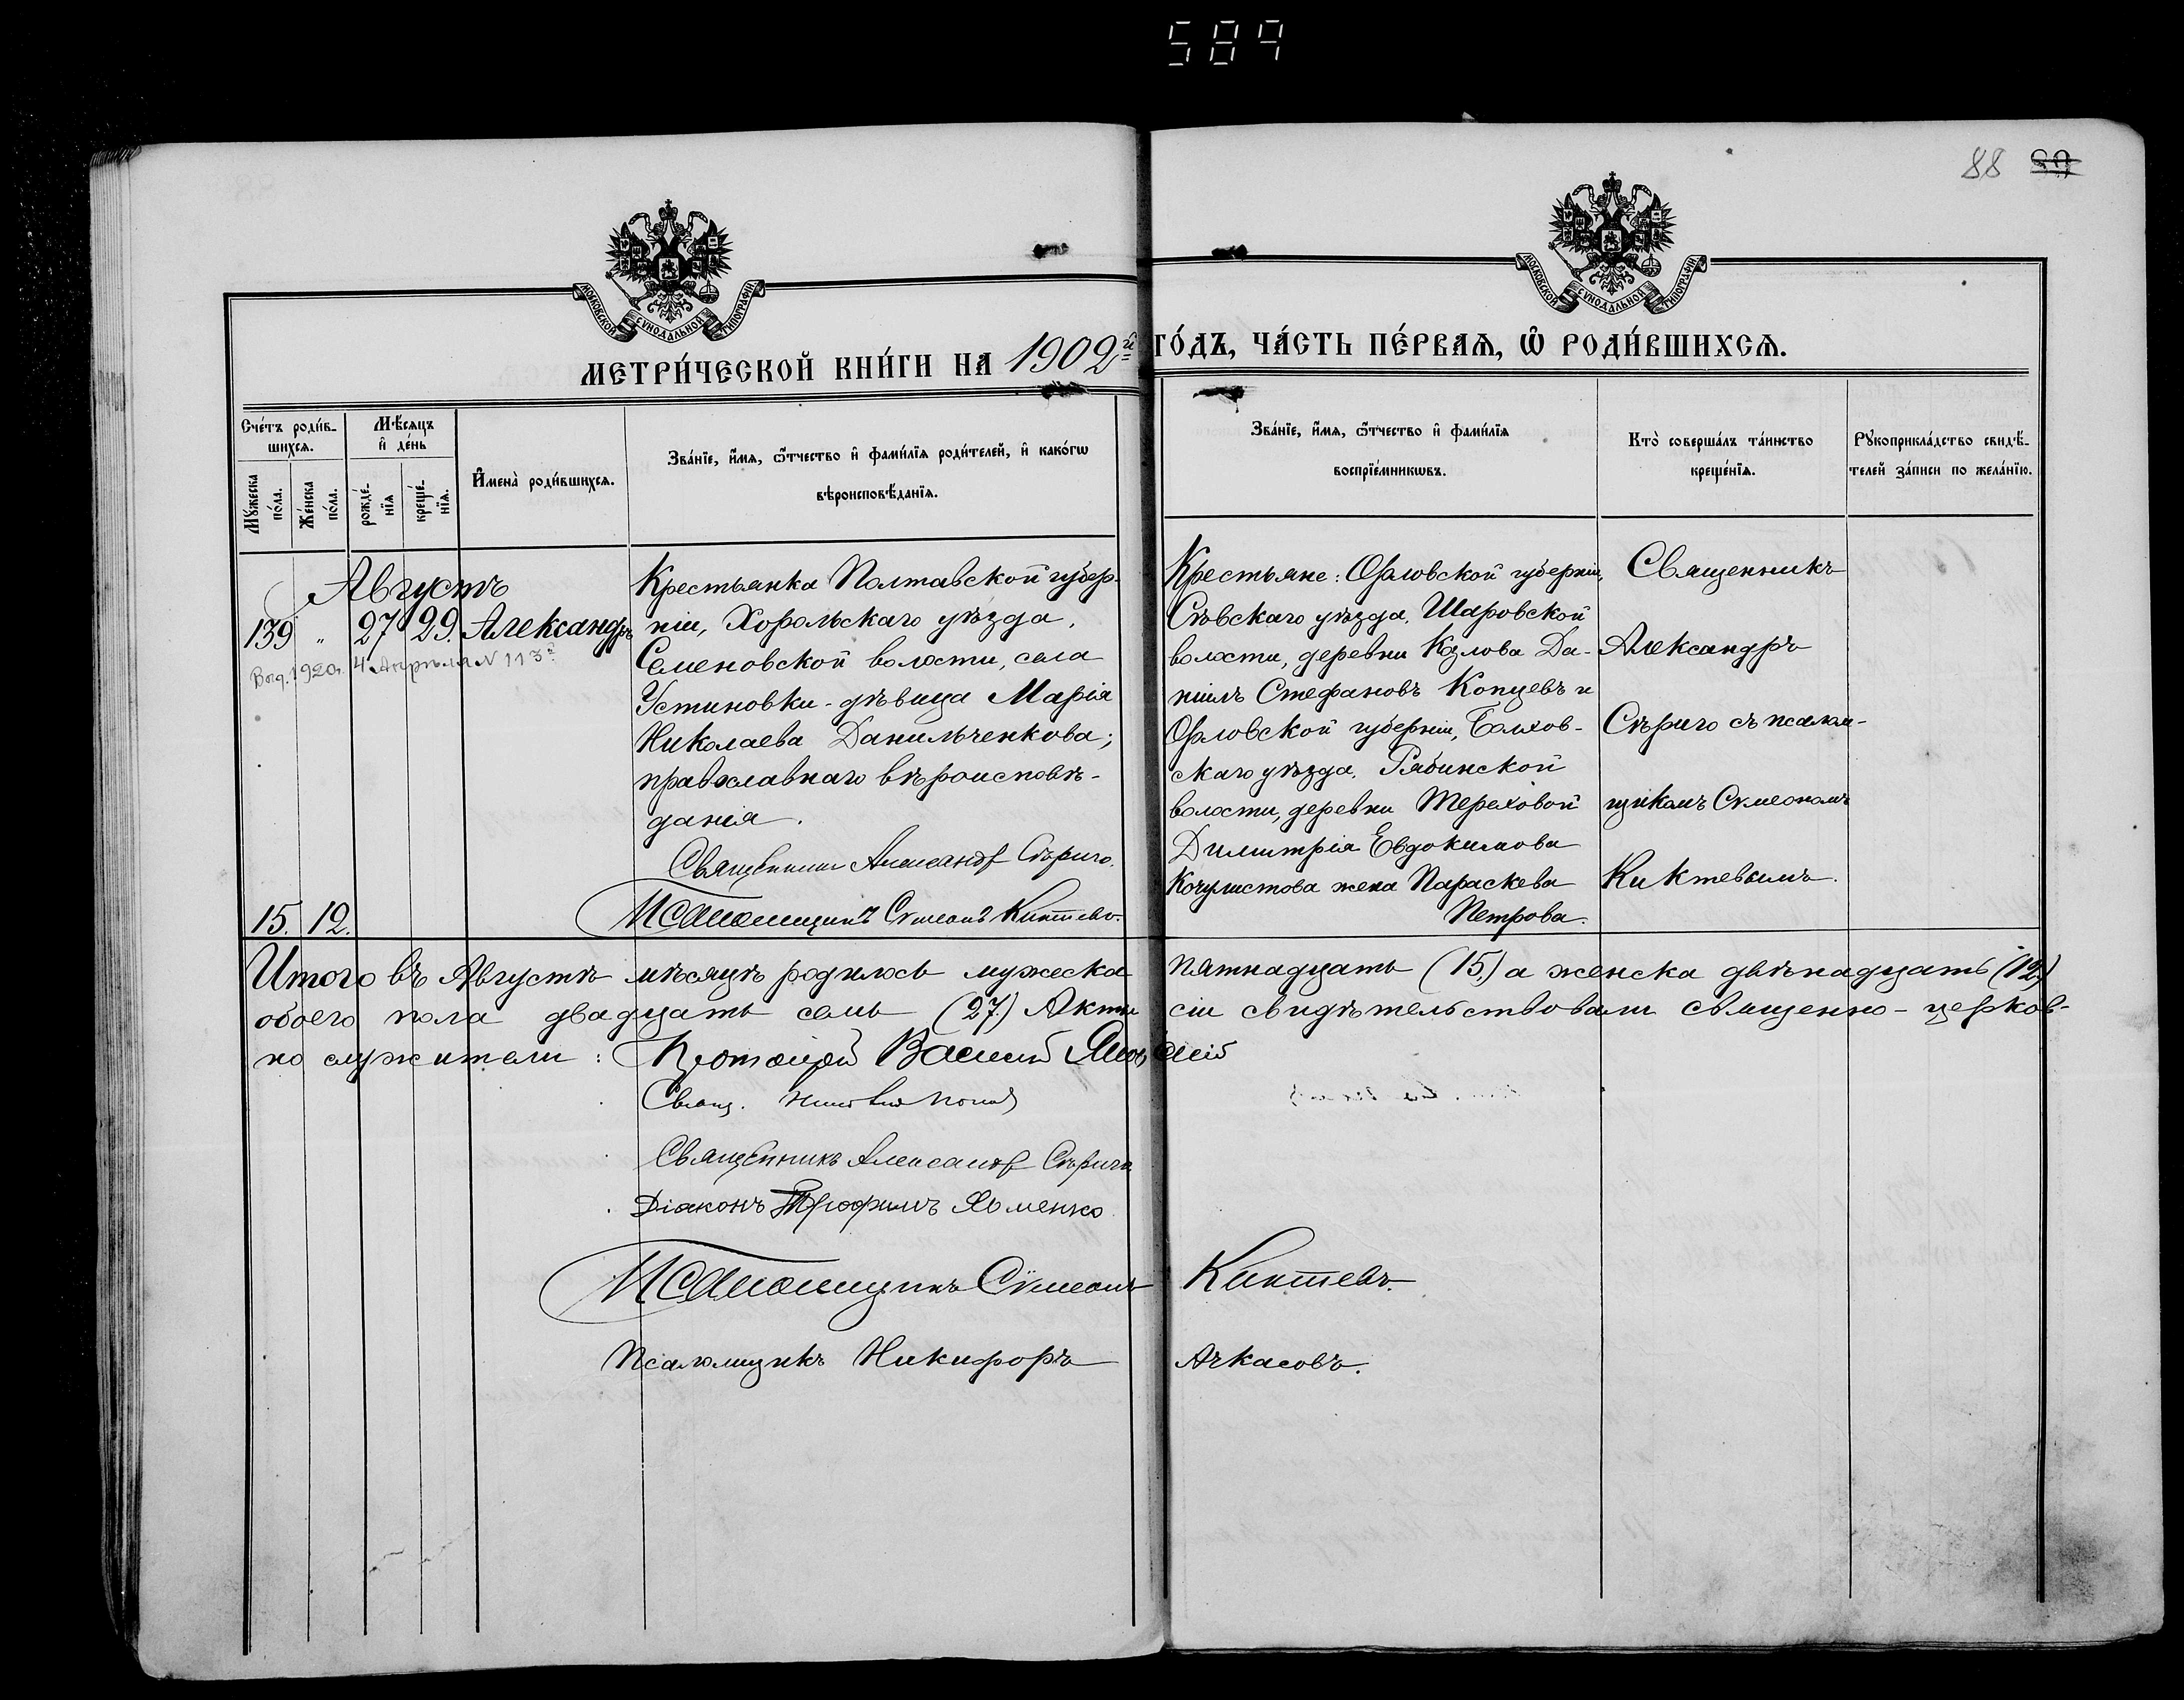 589
88 89
МОСКОВСКОЙ СѴНОДАЛЬНОЙ ТИПОГРАФІИ
МОСКОВСКОЙ СѴНОДАЛЬНОЙ ТИПОГРАФІИ
МЕТРИ́ЧЕСКОЙ КНИ́ГИ НА 1902й ГО́ДЪ, ЧА́СТЬ ПЕ́РВАѦ, Ѡ҆ РОДИ́ВШИХСѦ.
Сче́тъ роди́в-
шихсѧ.
Мꙋ́жеска по́ла.
Же́нска по́ла.
Мѣ́сѧцъ
и҆ де́нь
рожде́-
нїѧ
креще́-
нїѧ.
И҆мена̀ роди́вшихсѧ.
Зва́нїе, и҆́мѧ, ѻ҆́тчество и҆ фами́лїѧ роди́телей, и҆ како́гѡ
вѣроисповѣ́данїѧ.
Зва́нїе, и҆́мѧ, ѻ҆́тчество и҆ фами́лїѧ
воспрїе́мникѡвъ.
Кто̀ соверша́лъ та́инство
креще́нїѧ.
Рꙋкоприкла́дство свидѣ́-
телей за́писи по жела́нїю.
Августъ
139 „ 27 29. Александръ
Выд. 1920 г. 4 Апрѣля № 113
Крестьянка Полтавской губер-
ніи, Хорольскаго уѣзда,
Семеновской волости, села
Устиновки - дѣвица Марія
Николаева Данильченкова;
православнаго вѣроисповѣ-
данія.
Священникъ Александр Сѣриго.
Псаломщикъ Сѵмеонъ Киктевъ.
15. 12.
Крестьяне: Орловской губерніи,
Сѣвскаго уѣзда, Шаровской
волости, деревни Козлова Да-
ніилъ Стефановъ Копцевъ и
Орловской губерніи, Болхов-
скаго уѣзда, Рябинской
волости, деревни Тереховой
Димитрія Евдокимова
жена Параскева
Петрова.
Священникъ
Александръ
Сѣриго съ псалом-
щикомъ Сѵмеономъ
Киктевымъ.
Итого въ Августѣ мѣсяцѣ родилось мужеска пятнадцать (15.) а женска двѣнадцать (12.)
обоего пола двадцать семь (27.) Акты сіи свидѣтельствовали священно-церков-
но служители: Протоіерей Василій
Свящ. Попов
Священникъ Александр Сѣриго
Діаконъ Трофимъ Яьменко
Псаломщикъ Сѵмеонъ Киктевъ.
Псаломщикъ Никифоръ Ачкасовъ.